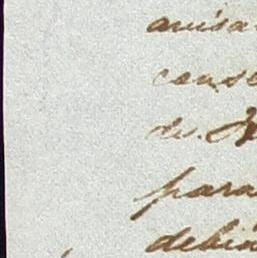 avisa
conse
de
para
debi